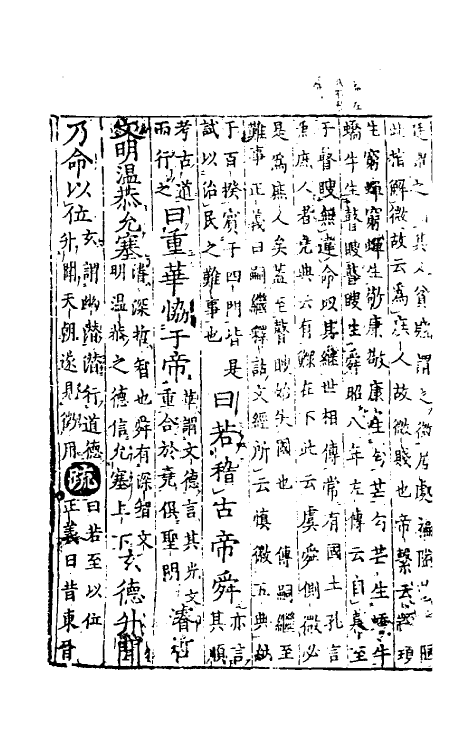 其人貧賤謂之微居處褊隘
此皆解微故云為庶人故微賤也帝繫云顓頊
生窮蟬窮蟬生敬康敬康生句芒句芒生蟜牛
蟜牛生瞽瞍瞽瞍生舜昭八年左傳云自幕至
于瞽瞍無違命似其繼世相傳常有國土孔言
為庶人者堯典云有鰥在下此云虞舜側微必
是為庶人矣蓋至瞽瞍始失國也　傳嗣繼至
難事正義曰嗣繼釋詁文經所云慎徽五典納
于百揆賓于四門皆是
試以治民之難事也
曰若稽古帝舜
亦言其順
考古道而行之
曰重華協于帝
華謂文德言其光文
重合於堯俱聖明
濬哲
文明溫恭允塞
濬深哲智也舜有深智文
明溫恭之德信允塞上下
玄德升聞
乃命以位
玄謂幽潛潛行道德
升聞天朝遂見徵用
疏
曰若至以位
正義曰昔東晉